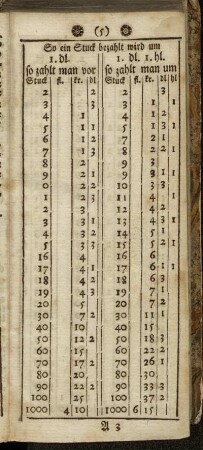 (5)
So ein Stuck bezahlt wird um
1. dl. 1. dl. 1. hl.
so zahlt man vor so zahlt man um
Stuck fl. kr. dl Stuck fl. kr. dl hl
2 2 2 3
3 3 3 1 1
4 1 4 1 2
5 1 1 5 1 3 1
6 1 2 6 2 1
7 1 3 7 2 2 1
8 2 8 3
9 2 1 9 3 1 1
0 2 2 10 3 3
1 2 3 11 4 1
2 3 12 4 2
3 3 1 13 4 3 1
4 3 2 14 5 1
5 3 3 15 5 2 1
16 4 16 6
17 4 1 17 6 1 1
18 4 2 18 6 3
19 4 3 19 7 1
20 5 20 7 2
30 7 2 30 11 1
40 10 40 15
50 12 2 50 18 3
60 15 60 22 2
70 17 2 70 26 1
80 20 80 30
90 22 2 90 33 3
100 25 100 37 2
1000 4 10 1000 6 15
A 3